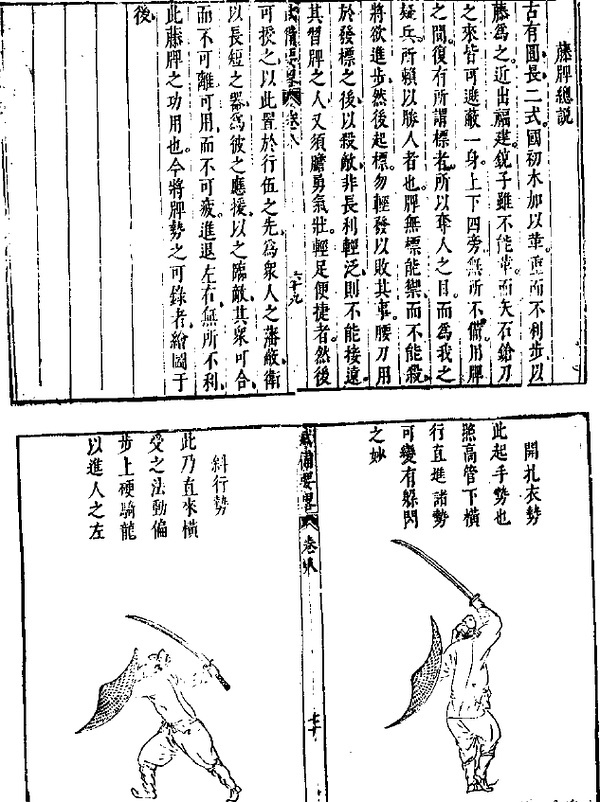 藤牌總說
古有圓長二式國初木加以革重而不利步以
藤為之近出福建銃子雖不能革而矢石鎗刀
之來皆可遮蔽一身上下四旁無所不備用牌
之間復有所謂標者所以奪人之目而為我之
疑兵所賴以勝人者也牌無標能禦而不能殺
將欲進步然後起標勿輕發以敗其事腰刀用
於發標之後以殺敵非長利輕泛則不能接遠
其習牌之人又須膽勇氣壯輕足便捷者然後
武備要畧 卷八 六十九
可授之以此置於行伍之先為衆人之藩蔽衛
以長短之器為彼之應援以之臨敵其衆可合
而不可離可用而不可疲進退左右無所不利
此藤牌之功用也今將牌勢之可錄者繪圖于
後
開扎衣勢
此起手勢也
照高管下橫
行直進諸勢
可變有躲閃
之妙
武備要畧 卷八 七十
斜行勢
此乃直來橫
受之法動偏
步上硬騎龍
以進人之左